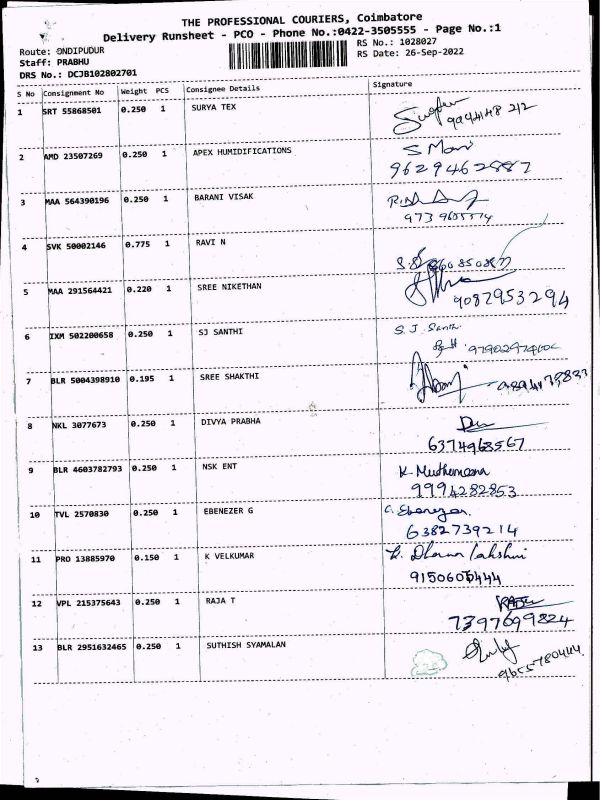 THE PROFESSIONAL COURIERS, Coimbatore
Delivery Runsheet - PCO - Phone No.:0422-3505555 - Page No.:1
Route: ONDIPUDUR
RS No.: 1028027
Staff: PRABHU
RS Date: 26-Sep-2022
DRS No.: DCJB102802701
S No Consignment No Weight PCS Consignee Details Signature
1 SRT 55868501 0.250 1 SURYA TEX
2 AMD 23507269 0.250 1 APEX HUMIDIFICATIONS S Mani
9629462887
3 MAA 564390196 0.250 1 BARANI VISAK
4 SVK 50002146 0.775 1 RAVI N
5 MAA 291564421 0.220 1 SREE NIKETHAN
9087953294
6 IXM 502200658 0.250 1 SJ SANTHI S. J. Santhi
7 BLR 5004398910 0.195 1 SREE SHAKTHI
8 NKL 3077673 0.250 1 DIVYA PRABHA
6374968567
9 BLR 4603782793 0.250 1 NSK ENT K. Muthumeena
9994282853
10 TVL 2570830 0.250 1 EBENEZER G G. Ebenezer.
6382739214
11 PRO 13885970 0.150 1 K VELKUMAR Dhana lakshmi
12 VPL 215375643 0.250 1 RAJA T
7397699824
13 BLR 2951632465 0.250 1 SUTHISH SYAMALAN